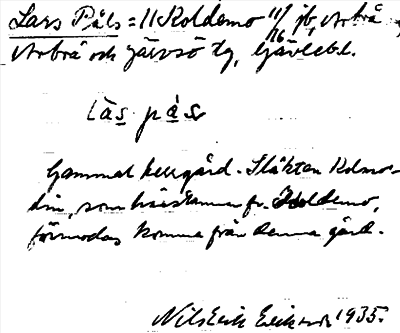 Lars Påls = 11 Koldemo 11/16 jb, Arbrå
Arbrå och Järvsö tg, Gävlebl.
läs pås
Gammal herrgård. Släkten Kolmo-
din, som härstamma fr. Koldemo,
förmodas komma från denna gård.
Nils Erik Eriksson 1935.